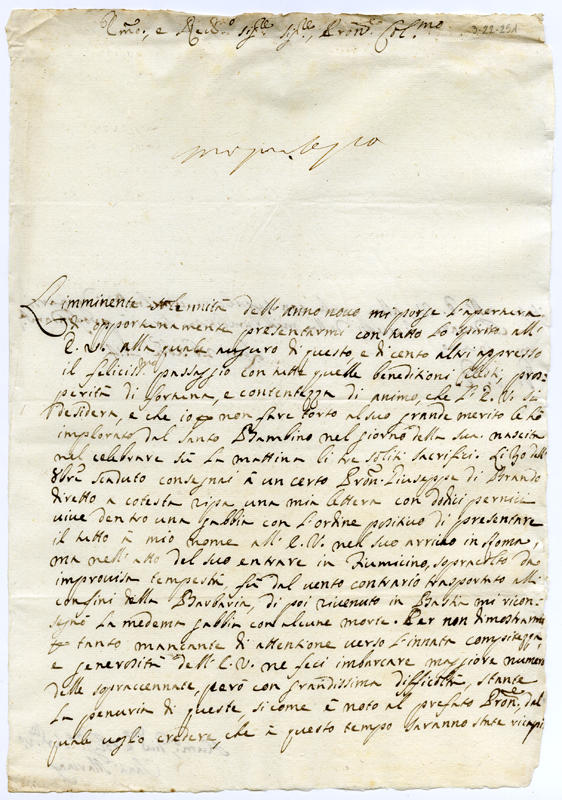 3-22-251
L'imminente solennità dell'anno novo mi porge l'apertura
di opportunamente presentarmi con tutto lo spirito all'
E. V. alla quale auguro di questo e di cento altri appresso
il feliciss.mo passaggio con tutte quelle beneditioni celesti, pros-
perità di fortuna, e contentezza di animo, che l'E. V. sà
desidera, e che io per non fare torto al suo grande merito le hò
implorato dal Santo Bambino nel giorno della sua nascita
nel celebrare su la mattina li tre soliti sacrifici. Li 30 dell'
8bre scaduto consegnai à un certo Pron. Giuseppe di Brando
diretto a cotesta ripa una mia lettera con dodici pernici
vive dentro una gabbia con l'ordine positivo di presentare
il tutto à mio nome all'E. V. nel suo arrivo in Roma,
ma nell'atto del suo entrare in Fiumicino, sopracolto da
improvisa tempesta, fù dal vento contrario trasportato alli
confini della Barbaria, di poi rivenuto in Bastia mi ricon-
segnò la medema gabbia con alcune morte. Per non dimostrarmi
tanto mancante di attentione verso l'innata compitezza,
e generosità dell'E. V. ne feci imbarcare maggiore numero
delle sopraccennate, però con grandissima difficoltà, stante
la penuria di queste sicome è noto al prefato Pron. dal
quale voglio credere, che à questo tempo saranno state